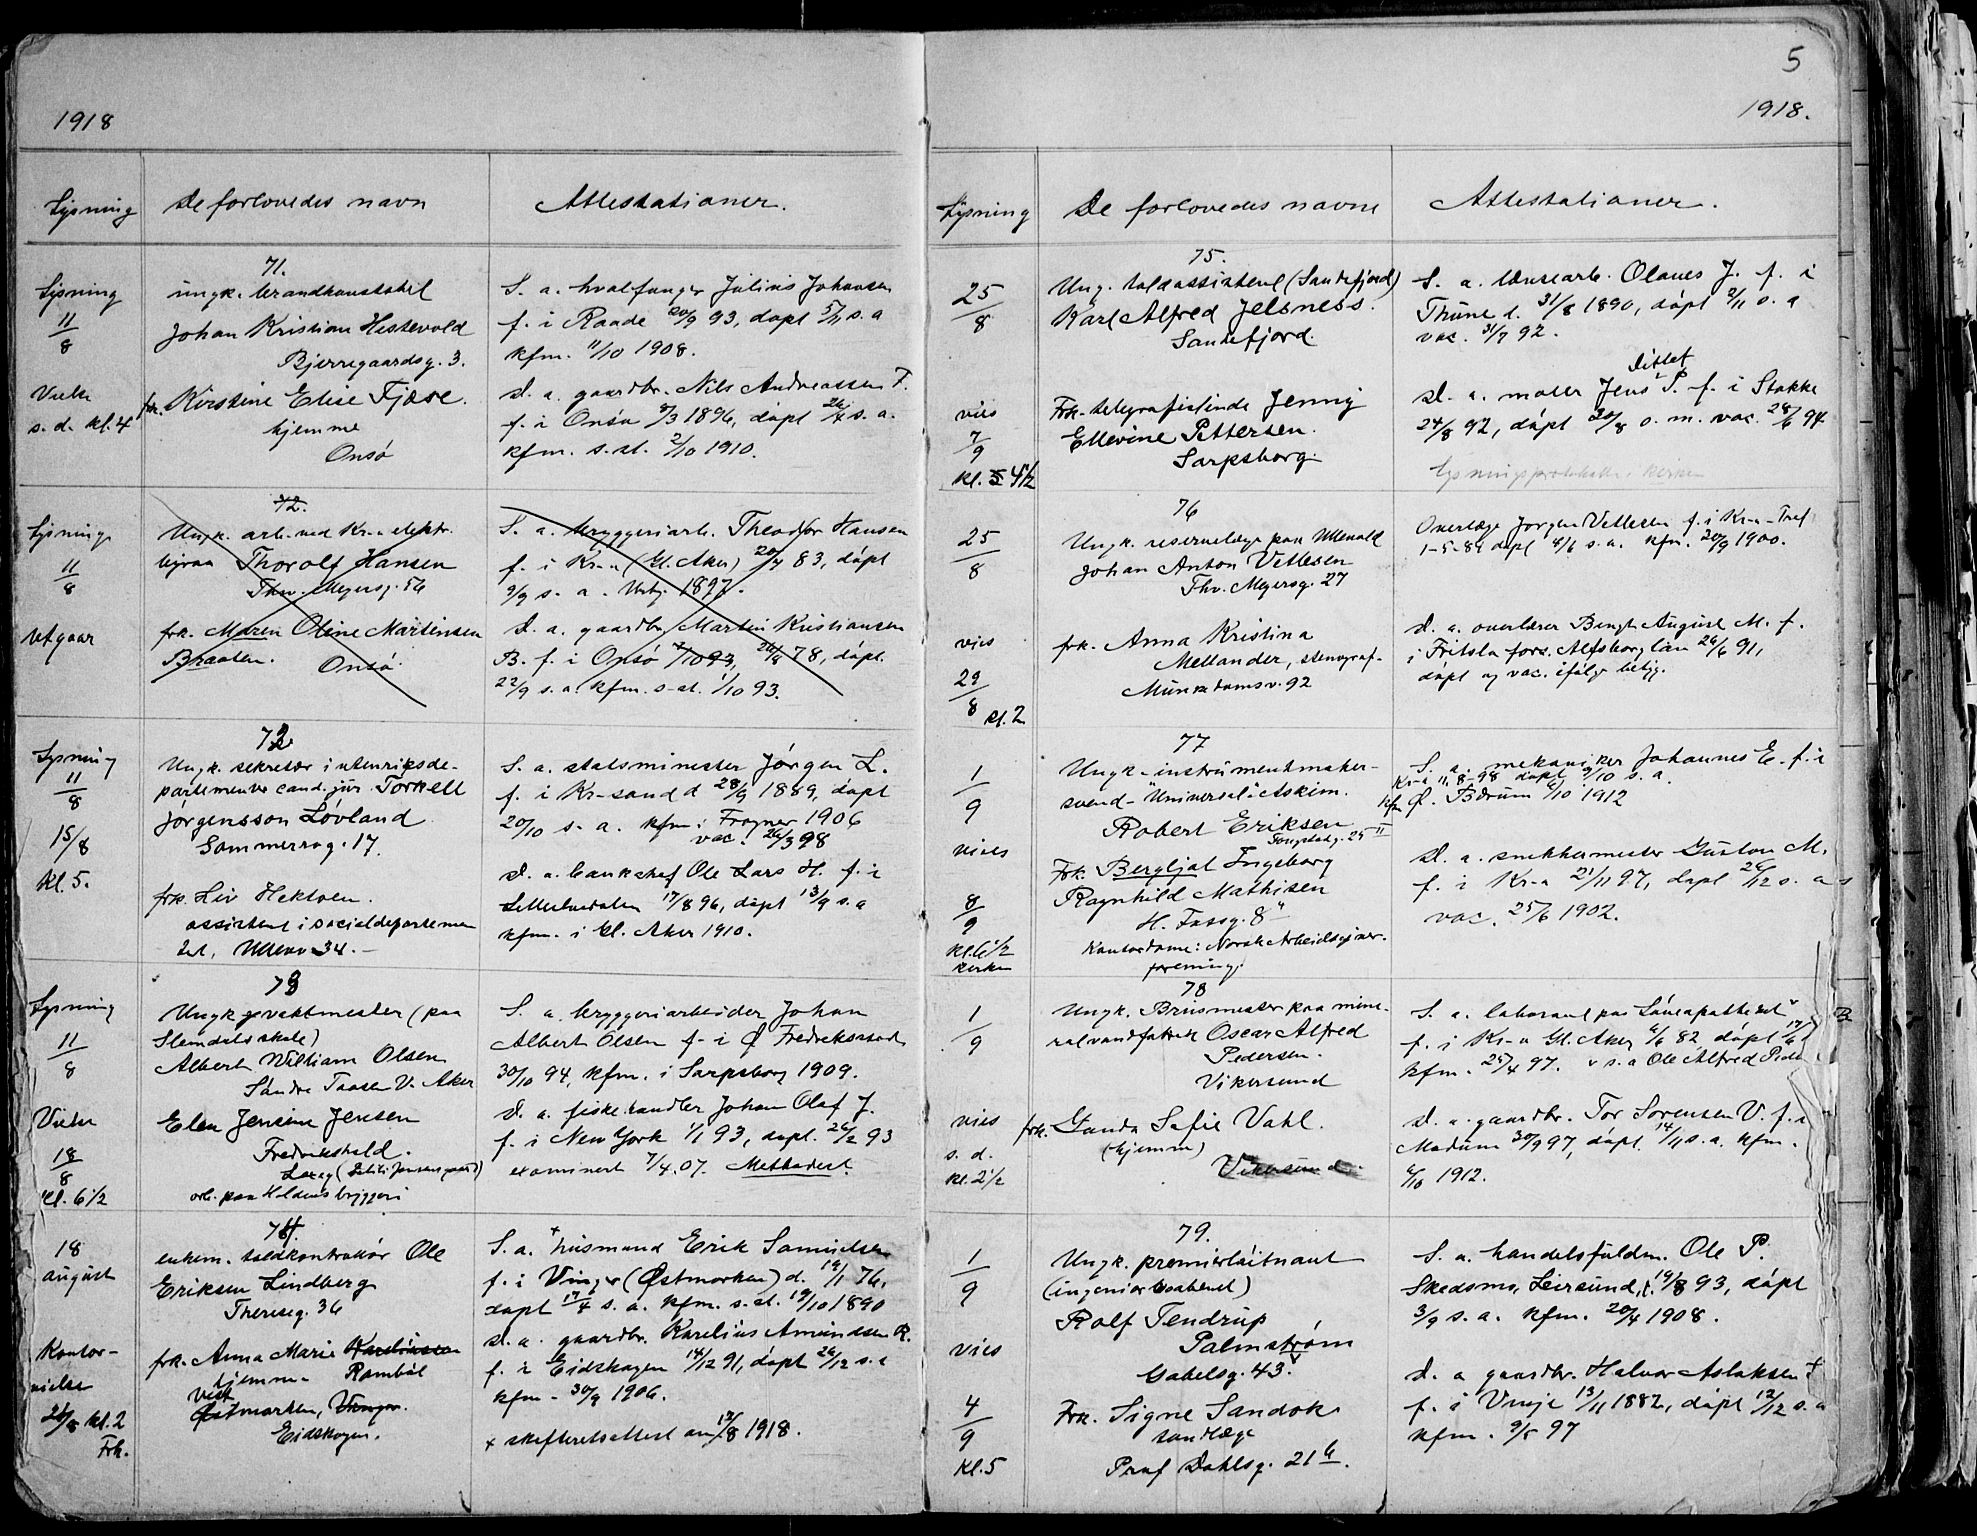 1918
Lysning
De forlovedes navn
Attestationer.
71.
Lysning
11/8
Vielse
s. d. kl. 4
ungk. brandkonstabel
Johan Kristian Hestevold
Bjerregaardsg. 3.
frk. Kirstine Elise Fjære.
hjemme
Onsö
S. a. hvalfanger Julius Johansen
f. i Raade 20/9 93, döpt 5/11 s. a
kfm. 11/10 1908.
D. a. gaardbr. Nils Andreassen F.
f. i Onsö /3 1896, döpt 26/ s. a.
kfm. s. st. 2/10 1910.
72.
Lysning
11/8
utgaar
Ungk. arb. ved Kr.a elektr.
byraa Thorolf Hansen
Thv. Meyersg. 56
frk. Maren Oline Martinsen
Braaten. Onsö
S. a. bryggeriarb. Theodor Hansen
f. i Kr.a (Gl. Aker) 20/7 83, döpt
9/9 s. a. Utg. 1897.
D. a. gaardbr. Martin Kristiansen
B. f. i Onsö 78, döpt
22/9 s. a. kfm. s. st. 1/10 93.
72
Lysning
11/8
15/8
kl. 5.
Ungk. sekretær i utenriksde-
partementet cand. jur. Torkell
Jörgensson Lövland
Sommerrog. 17.
frk. Liv Hektoen.
assistent i socialdepartemen
tet, Ullevv. 34. -
S. a. statsminister Jörgen L.
f. i Kr.sand d 28/9 1889, döpt
20/10 s. a. kfm. Frogner 1906
vac. 26/3 98
D. a. bankchef Ole Lars H. f. i
Lilleelvedalen 17/8 96, döpt 13/9 s. a
kfm. i Gl. Aker 1910.
73
Lysning
11/8
Vielse
18/8
kl. 6 1/2
Ungk. vaktmester (paa
Slemdals skole)
Albert William Olsen
Söndre Taasen V. Aker
Elen Jensine Jensen
Fredrikshald.
arb. paa Haldens bryggeri
S. a. bryggeriarbeider Johan
Albert Olsen f. i Ø Fredriksstad
30/10 94, kfm. i Sarpsborg 1909.
D. a. fiskehandler Johan Olaf J.
f. i New York 1/1 93, döpt 26/2 93
examinert 7/4. 07. Methodist.
74.
18
august
Kontor-
vielse
26/8 kl. 2
Frk.
enkem. toldkontrollör Ole
Eriksen Lindberg
Thereseg. 36
frk. Anna Marie Karelinsen
hjemme Ramböl
vest
Østmarken, Vinger.
Eidskogen.
S. a. + husmand Erik Samuelsen
f. i Vinger (Østmarken) d. 19/1 76,
döpt 17/4 s. a. kfm. s. st. 19/10 1890
D. a. gaardbr. Karelius Amundsen R.
f. i Eidskogen 14/12 91, döpt 26/12 s. a
kfm. 30/9 1906.
+ skifteretsattest av 13/8 1918.
5
1918.
Lysning
De forlovedes navne
Attestationer.
75.
25/8
vies
7/9
kl. 5 4 1/2
Ung. toldassistent (Sandefjord)
Karl Alfred Jelsness.
Sandefjord.
Frk. telegrafistinde Jenny
Ellevine Pettersen.
Sarpsborg.
S. a. lænsearb. Olaves J. f. i
Thune d. 31/8 1890, döpt 2/11 s. a
vac. 31/7 92.
Ditlef
D. a. maler Jens P. f. i Stokke
24/8 92, döpt 30/8 s. m. vac. 28/6 94
lysningsprotokollen i kirken
76
25/8
vies
29/8 kl. 2
Ungk. reservelæge paa Ullevold
Johan Anton Vetlesen
Thv. Meyersg. 27
frk. Anna Kristina
Mellander, stenograf.
Munkedamsv. 92
Overlæge Jörgen Vetlesen f. i Kr.a - Tref.
1-5-84 döpt 4/6 s. a. kfm. 30/9 1900.
D. a. overlærer Bengt August M. f.
i Fritsla fors. Alfsborg län 26/6 91,
döpt og vac. ifölge betyg.
77
1/9
vies
8/9
kl. 6 1/2
kirken
Ungk. instrumentmaker-
svend - Universal: Askim.
Robert Eriksen
Tougstadg. 25 II
Frk. Bergljot Ingeborg
Ragnhild Mathisen
H. Fossg. 8 II
Kontordame: Norsk Arbeidsgiver-
forening.
S. a. mekaniker Johannes E. f. i
Kr.a 11.8-98 döpt 9/10 s. a.
kfm Ø. Bærum /10 1912
D. a. snekkermester Gustav M.
f. i Kr.a 21/11 97, döpt 26/12 s. a
vac. 25/6 1902.
78
1/9
vies
s. d.
kl. 2 1/2
Ungk. Brusmester paa mine-
ralvandfabrik Oscar Alfred
Pedersen.
Vikersund
frk. Gunda Sofie Vahl.
(hjemme)
Vikersund.
S. a. laborant paa Löveapotheket
f. i Kr.a Gl. Aker 4/6 82 döpt
kfm. 25/4 97. v s. a Ole Alfred
D. a. gaardbr. Tor Sorensen V. f. i
Modum 30/9 97, döpt 14/11 s. a. kfm.
6/10 1912.
79.
1/9
vies
4/9
kl. 5
Ungk. premierløitnant
(ingeniørvaabenet)
Rolf Tendrup
Palmstrøm
Gabelsg. 43.
Frk. Signe Sandok
tandlæge
Prof Dahlsg. 21 b.
S. a. handelsfuldm. Ole P.
Skedsmo, Leirsund, f. 19/8 93, döpt
3/9 s. a. kfm. 20/4 1908.
D. a. gaardbr. Halvor Aslaksen +
f. i Vinje 13/11 1882, döpt 12/12 s. a
kfm. 9/5 97